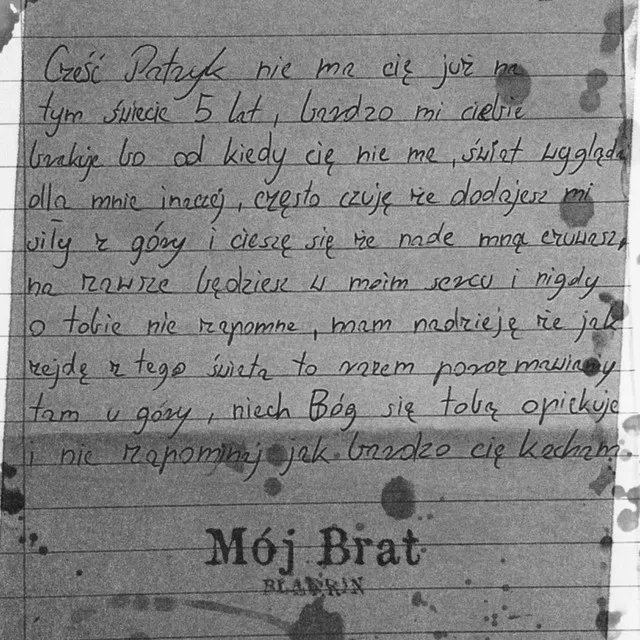 Cześć Patryk nie ma cię już na
tym świecie 5 lat, bardzo mi ciebie
brakuje bo od kiedy cię nie ma, świat wygląda
dla mnie inaczej, często czuję że dodajesz mi
siły z góry i cieszę się że nade mną czuwasz,
na zawsze będziesz w moim sercu i nigdy
o tobie nie zapomnę, mam nadzieję że jak
zejdę z tego świata to razem porozmawiamy
tam u góry, niech Bóg się tobą opiekuje
i nie zapominaj jak bardzo cię kocham.
Mój Brat